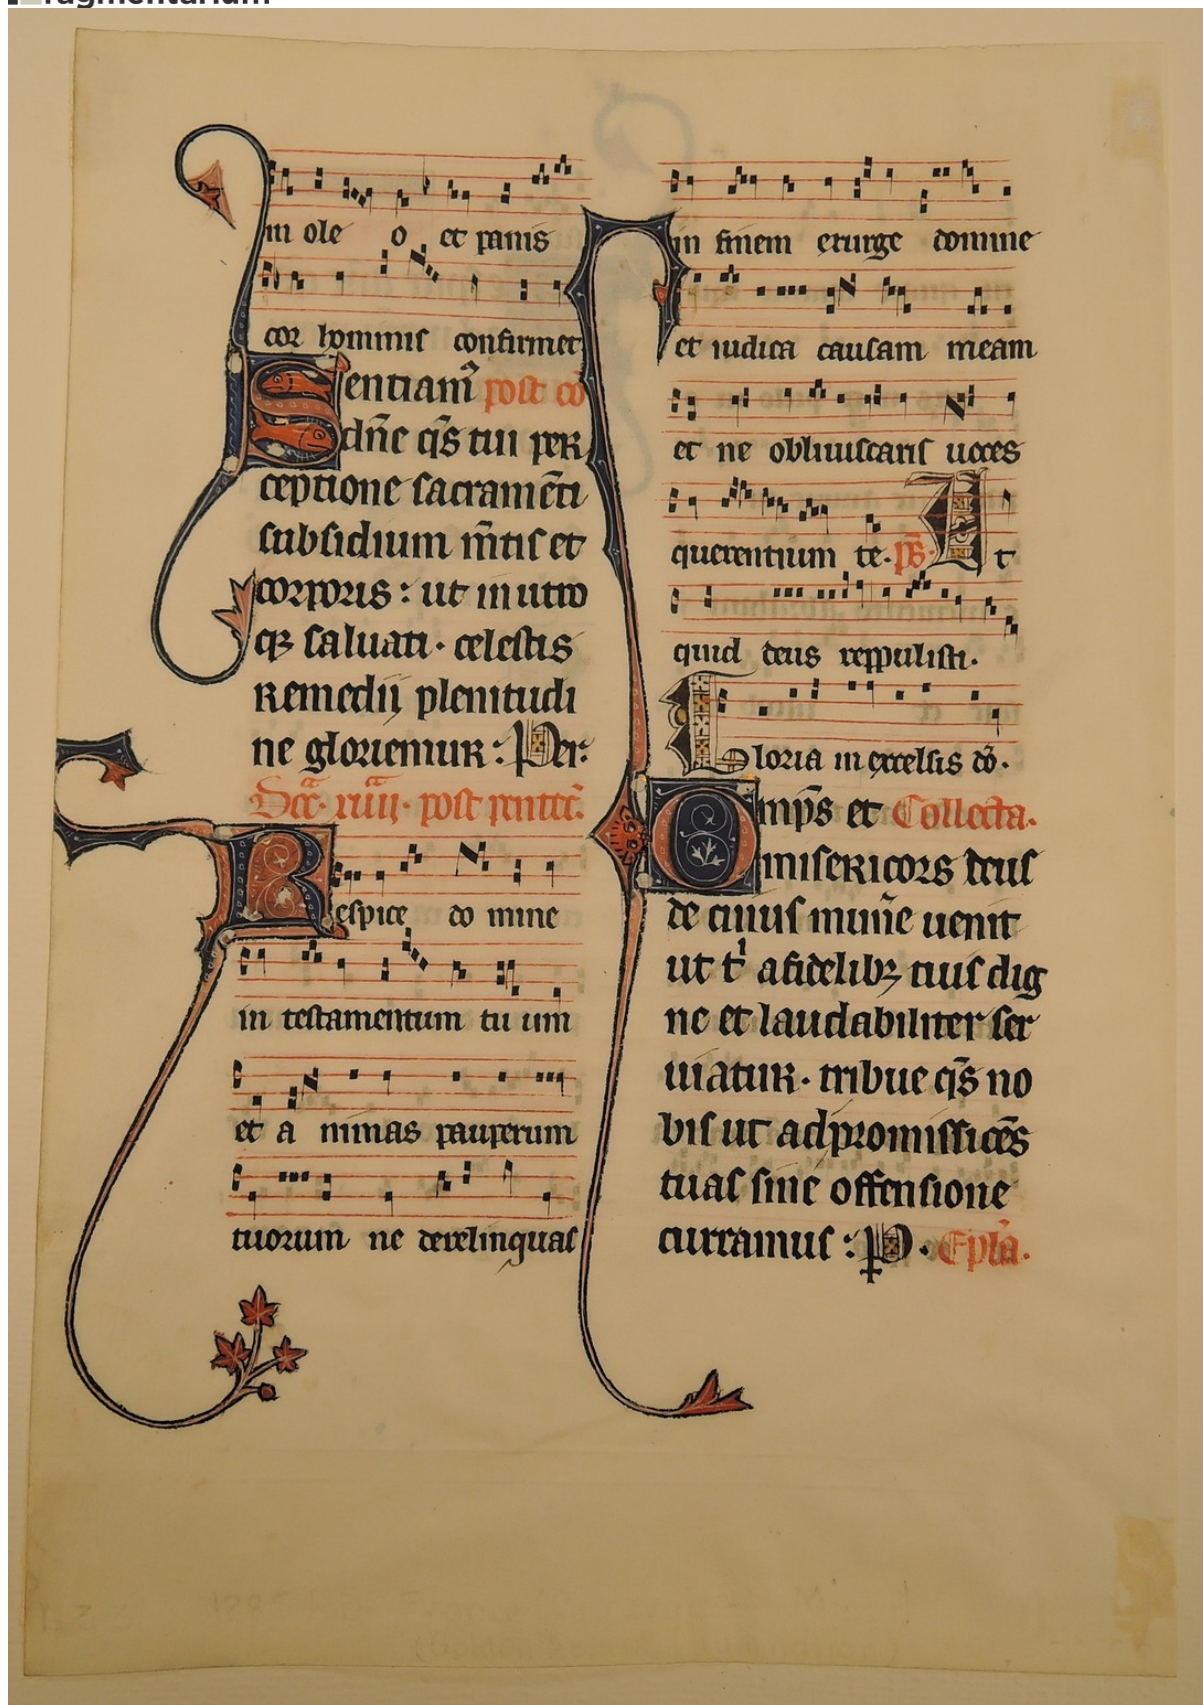 in ole o et panis
cor hominis confirmet
Sentiam᷒ post cō
dn̄e q̄s tui per
ceptione sacramēti
subsidium m̄tis et
corporis : ut in utro
qꝫ saluati · celestis
Remedij plenitudi
ne gloriemur : Per :
post pentec̄.
Respice do mine
in testamentum tu um
et a nimas pauperum
tuorum ne derelinquas
in finem exurge domine
et iudica causam meam
et ne obliuiscaris uoces
querentium te · p̄s · Ut
quid deus reppulisti ·
Gloria in excelsis dō ·
Omp̄s et Collecta ·
misericors deus
de cuius mun̄e uenit
ut tⁱ a fidelibꝫ tuis dig
ne et laudabiliter ser
uiatur · tribue q̄s no
bis ut ad promissiōes
tuas sine offensione
curramus : P · Epl̄a ·